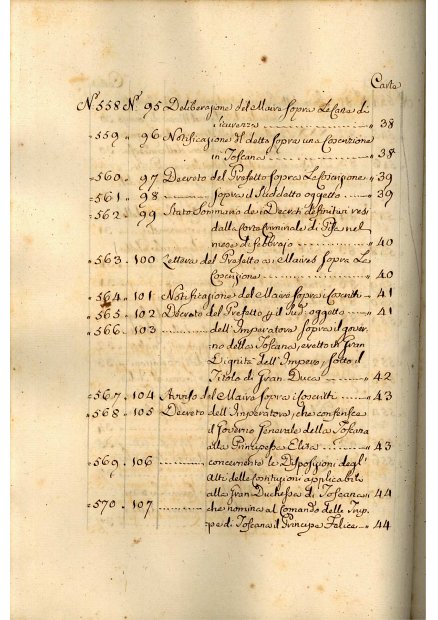 Carte
N.° 558 N.° 95 Deliberazione del Maire sopra Le Carte di
sicurezza ............ " 38
" 559 " 96 Notificazione del detto sopra una Coscrizione
in Toscana ............ " 38
" 560 " 97 Decreto del Prefetto sopra La Coscrizione " 39
" 561 " 98 ............ sopra il Suddetto oggetto " 39
" 562 " 99 Stato Sommario dei Decreti definitivi resi
dalla Corte Criminale di Pisa nel
mese di febbrajo ............ " 40
" 563 " 100 Lettera del Prefetto ai Maires sopra La
Coscrizione ............ " 40
" 564 " 101 Notificazione del Maire sopra i Coscritti " 41
" 565 " 102 Decreto del Prefetto oggetto " 41
" 566 " 103 ............ dell'Imperatore sopra il gover
no della Toscana, eretto in Gran
Dignità dell'Impero, sotto il
Titolo di Gran Duca ............ " 42
" 567 " 104 Avviso del Maire sopra i Coscritti " 43
" 568 " 105 Decreto dell'Imperatore, che conferisce
il Governo Generale della Toscana
alla Principessa Elisa ............ " 43
" 569 " 106 ............ concernente le Disposizioni degl'
Atti delle Costituzioni applicabili
alla Gran Duchessa di Toscana " 44
" 570 " 107 ............ che nomina al Comando delle Trup
pe di Toscana il Principe Felice " 44